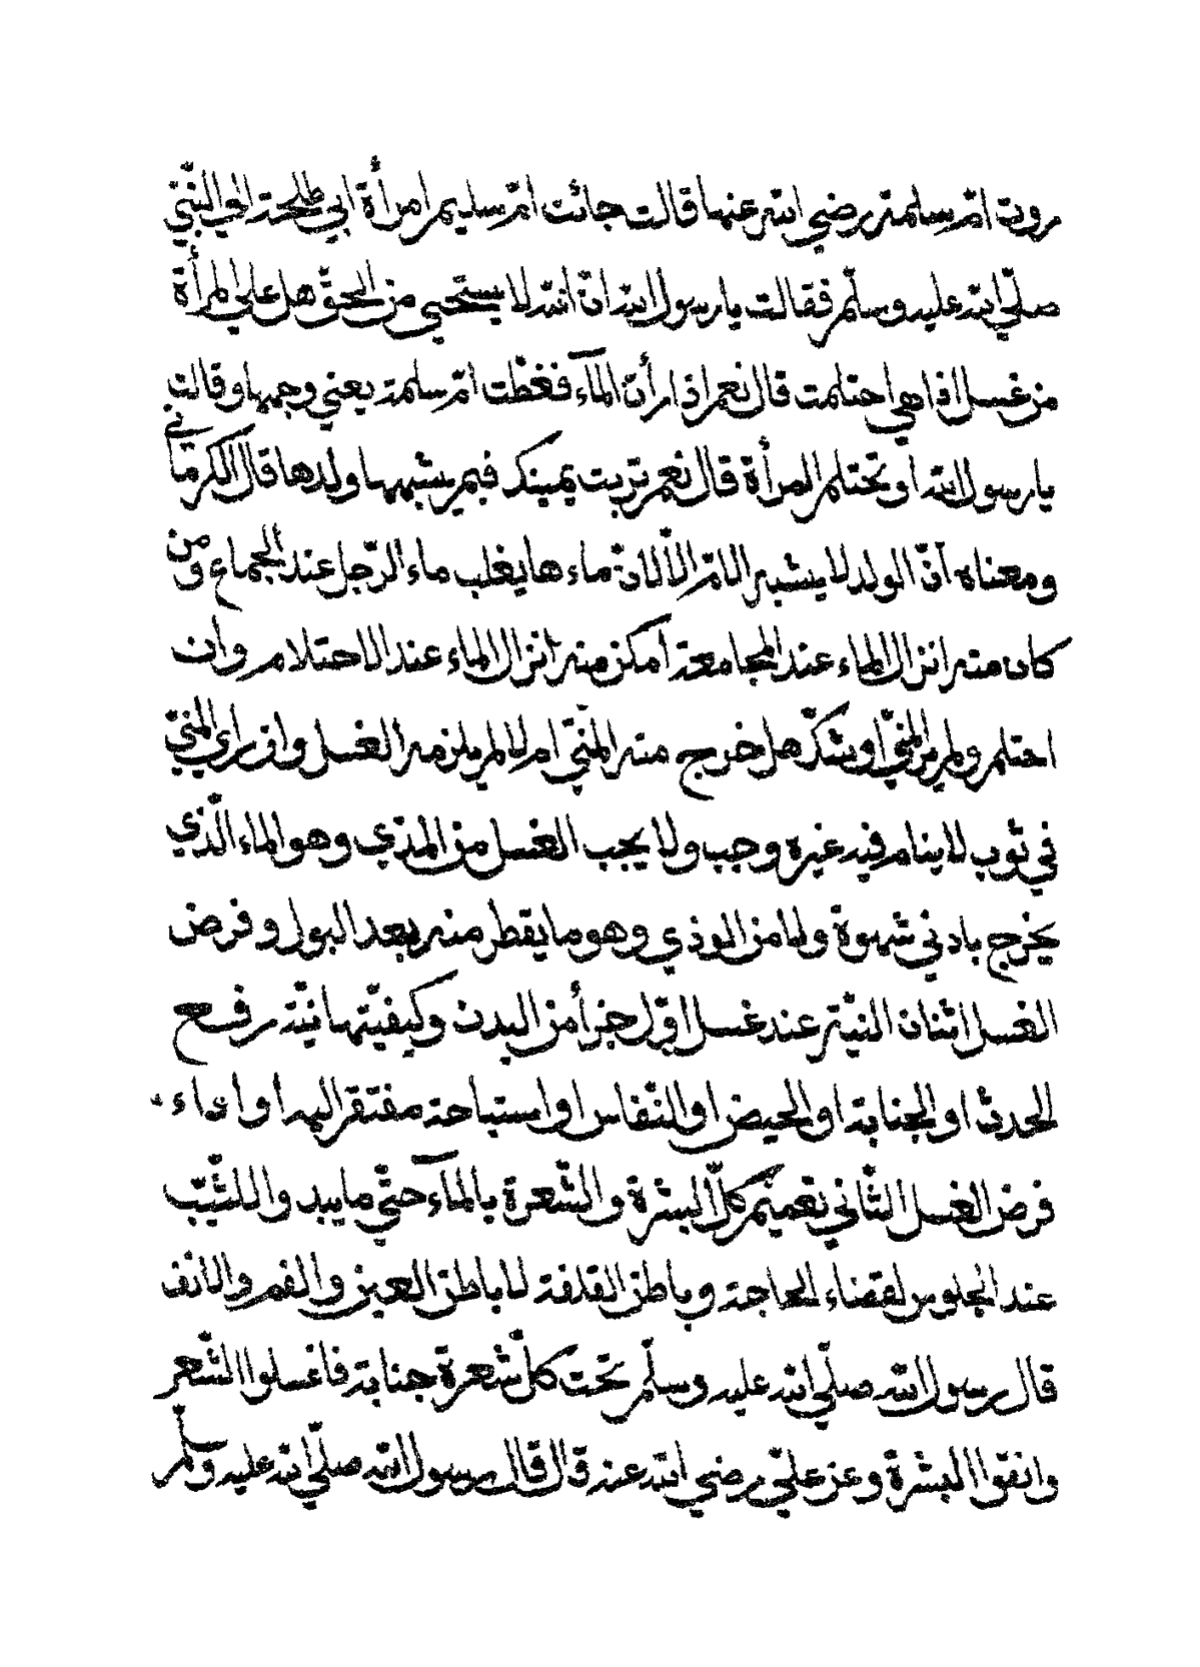 روت امّ سلمة رضي الله عنها قالت جائت امّ سليم امرأة ابي طلحة الي النّبيّ
صلّي الله عليه وسلّم فقالت يا رسول الله انّ الله لا يستحيي من الحقّ هل علي المرأة
من غسل اذا هي احتلمت قال نعم اذا رأت المآء فغطّت امّ سلمة يعني وجهها وقالت
يا رسول الله أو تحتلم المرأة قال نعم تربت يمينك فبم يشبهها ولدها قال الكرماني
ومعناه أنّ الولد لا يشبه الامّ الّا لانّ ماءها يغلب ماء الرّجل عند الجماع ومن
كان منه انزال الماء عند المجامعة أمكن منه انزال الماء عند الاحتلام وان
احتلم ولم ير المنيّ او شكّ هل خرج منه المنّيّ ام لا لم يلزمه الغسل وان رأي المنيّ
في ثوب لا ينام فيه غيره وجب ولا يجب الغسل من المذي وهو الماء الّذي
يخرج بادني شهوة ولا من الوذي وهو ما يقطر منه بعد البول وفرض
الغسل اثنان النيّة عند غسل اوّل جزأ من البدن وكيفيّتها نيّة رفع
الحدث او الجنابة او الحيض او النّفاس او استباحة مفتقر اليها أو اداء
فرض الغسل الثّاني تعميم كلّ البشرة والشّعرة بالمآء حتّي ما يبدو للثّيّب
عند الجلوس لقضاء الحاجة وباطن القلفة لا باطن العين والفم والانف
قال رسول الله صلّي الله عليه وسلّم تحت كلّ شعرة جنابة فاغسلوا الشّعر
وانقوا البشرة وعن عليّ رضي الله عنه قال قال رسول الله صلّي الله عليه وسلّم